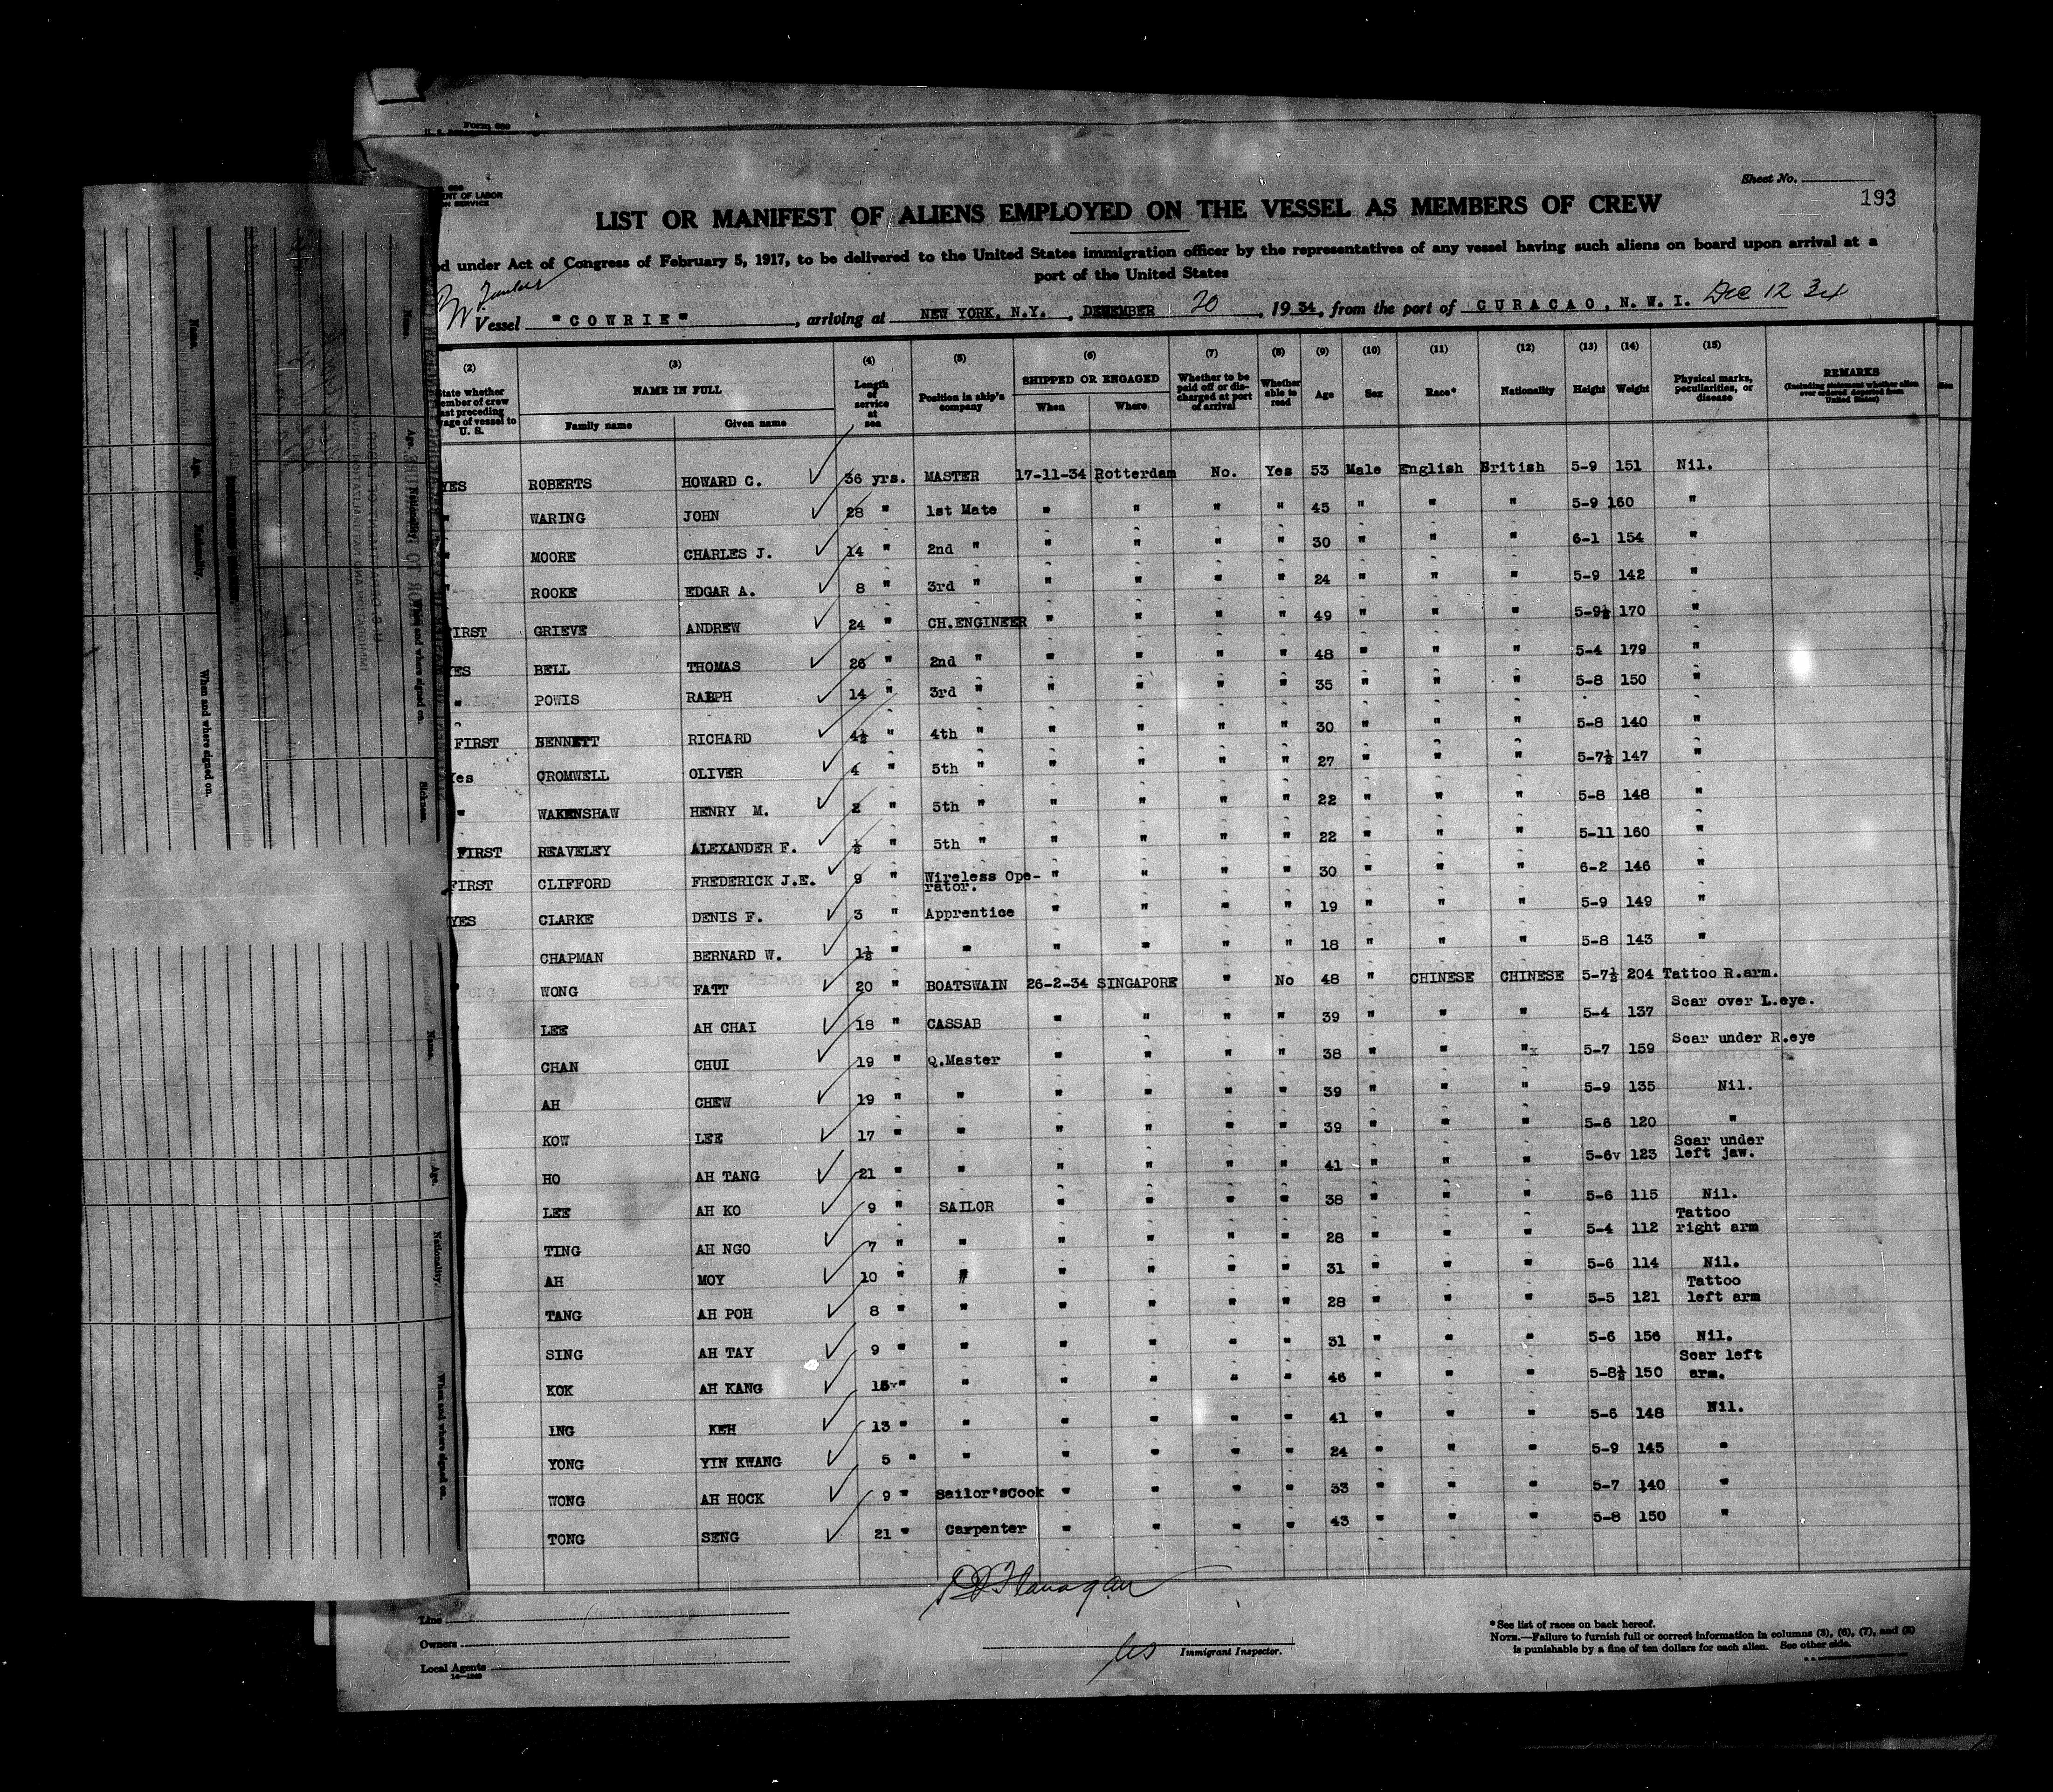 Form 680
Sheet No.
193
ENT OF LABOR
N SERVICE
LIST OR MANIFEST OF ALIENS EMPLOYED ON THE VESSEL AS MEMBERS OF CREW
ed under Act of Congress of February 5, 1917, to be delivered to the United States immigration officer by the representatives of any vessel having such aliens on board upon arrival at a
port of the United States
Vessel "COWRIE", arriving at NEW YORK. N.Y., DEMEMBER 20, 1934, from the port of CURACAO, N.W.I. Dec 12 34
(2) (3) (4) (5) (6) (7) (8) (9) (10) (11) (12) (13) (14) (15)
State whether member of crew last preceding voyage of vessel to U. S. NAME IN FULL Family name Given name Length of service at sea Position in ship's company SHIPPED OR ENGAGED When Where Whether to be paid off or discharged at port of arrival Whether able to read Age Sex Race* Nationality Height Weight Physical marks, peculiarities, or disease REMARKS (Including statement whether alien ever ordered deported from United States)
YES ROBERTS HOWARD C. 36 yrs. MASTER 17-11-34 Rotterdam No. Yes 53 Male English British 5-9 151 Nil.
" WARING JOHN 28 " 1st Mate " " " " 45 " " " 5-9 160 "
" MOORE CHARLES J. 14 " 2nd " " " " " 30 " " " 6-1 154 "
" ROOKE EDGAR A. 8 " 3rd " " " " " 24 " " " 5-9 142 "
FIRST GRIEVE ANDREW 24 " CH.ENGINEER " " " " 49 " " " 5-9½ 170 "
YES BELL THOMAS 26 " 2nd " " " " " 48 " " " 5-4 179 "
" POWIS RALPH 14 " 3rd " " " " " 35 " " " 5-8 150 "
FIRST BENNETT RICHARD 4½ " 4th " " " " " 30 " " " 5-8 140 "
Yes CROMWELL OLIVER 4 " 5th " " " " " 27 " " " 5-7½ 147 "
" WAKENSHAW HENRY M. 2 " 5th " " " " " 22 " " " 5-8 148 "
FIRST REAVELEY ALEXANDER F. ½ " 5th " " " " " 22 " " " 5-11 160 "
FIRST CLIFFORD FREDERICK J.E. 9 " Wireless Ope-rator. " " " " 30 " " " 6-2 146 "
YES CLARKE DENIS F. 3 " Apprentice " " " " 19 " " " 5-9 149 "
CHAPMAN BERNARD W. 1½ " " " " " " 18 " " " 5-8 143 "
WONG FATT 20 " BOATSWAIN 26-2-34 SINGAPORE " No 48 " CHINESE CHINESE 5-7½ 204 Tattoo R.arm.
LEE AH CHAI 18 " CASSAB " " " " 39 " " " 5-4 137 Scar over L.eye.
CHAN CHUI 19 " Q.Master " " " " 38 " " " 5-7 159 Scar under R.eye
AH CHEW 19 " " " " " " 39 " " " 5-9 135 Nil.
KOW LEE 17 " " " " " " 39 " " " 5-6 120 "
HO AH TANG 21 " " " " " " 41 " " " 5-6v 123 Scar under left jaw.
LEE AH KO 9 " SAILOR " " " " 38 " " " 5-6 115 Nil.
TING AH NGO 7 " " " " " " 28 " " " 5-4 112 Tattoo right arm
AH MOY 10 " " " " " " 31 " " " 5-6 114 Nil.
TANG AH POH 8 " " " " " " 28 " " " 5-5 121 Tattoo left arm
SING AH TAY 9 " " " " " " 31 " " " 5-6 156 Nil.
KOK AH KANG 15 " " " " " " 46 " " " 5-8½ 150 Scar left arm.
ING KEH 13 " " " " " " 41 " " " 5-6 148 Nil.
YONG YIN KWANG 5 " " " " " " 24 " " " 5-9 145 "
WONG AH HOCK 9 " Sailor'sCook " " " " 33 " " " 5-7 140 "
TONG SENG 21 " Carpenter " " " " 43 " " " 5-8 150 "
Line
Owners
Local Agents
Flanagan
Immigrant Inspector.
*See list of races on back hereof.
NOTE.—Failure to furnish full or correct information in columns (3), (6), (7), and (8)
is punishable by a fine of ten dollars for each alien. See other side.
Name.
Age.
Nationality.
When and where signed on.
Name.
Age.
When and where signed on.
Sickness.
Name.
Age.
Nationality.
When and where signed on.